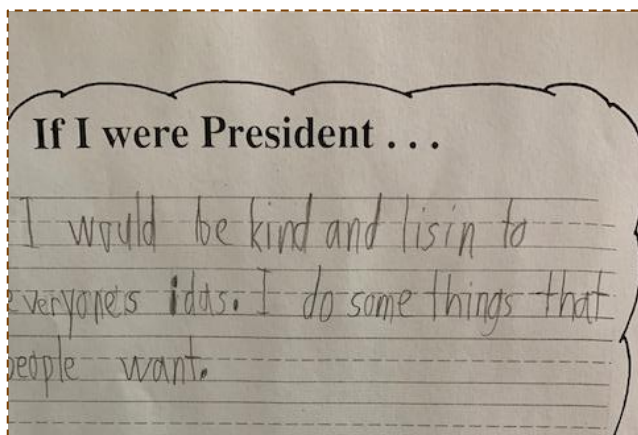 If I were President . . .
I would be kind and lisin to
everyone's idas. I do some things that
people want.